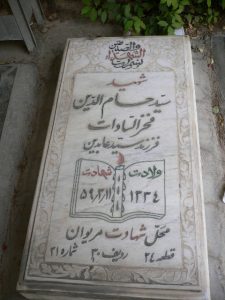 شهید
سید حسام الدین
فخر السادات
فرزند سید عابدین
ولادت شهادت
۱۳۳۴ ۵۹/۳/۱۱
محل شهادت مریوان
قطعه ۲۴ ردیف ۳۰ شماره ۲۱